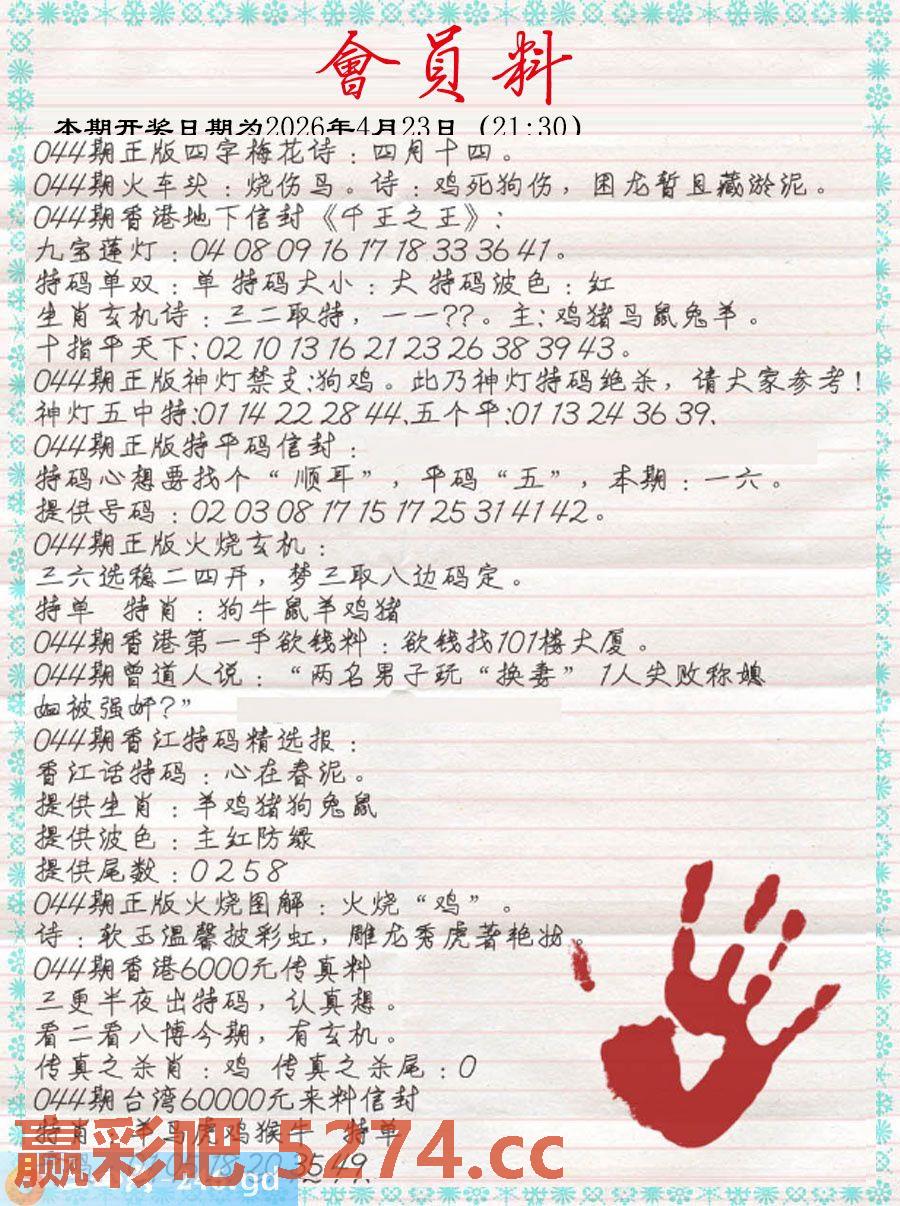 會員料
本期开奖日期为2026年4月23日（21:30）
044期正版四字梅花诗：四月十四。
044期火车头：烧伤鸟。诗：鸡死狗伤，困龙暂且藏淤泥。
044期香港地下信封《千王之王》：
九宝莲灯：04 08 09 16 17 18 33 36 41。
特码单双：单 特码大小：大 特码波色：红
生肖玄机诗：三二取特，一一??。主：鸡猪马鼠兔羊。
十指平天下：02 10 13 16 21 23 26 38 39 43。
044期正版神灯禁支：狗鸡。此乃神灯特码绝杀，请大家参考！
神灯五中特：01 14 22 28 44.五个平：01 13 24 36 39.
044期正版特平码信封：
特码心想要找个“顺耳”，平码“五”，本期：一六。
提供号码：02 03 08 17 15 17 25 31 41 42。
044期正版火烧玄机：
三六选稳二四开，梦三取八边码定。
特单 特肖：狗牛鼠羊鸡猪
044期香港第一手欲钱料：欲钱找101楼大厦。
044期曾道人说：“两名男子玩“换妻” 1人失败称媳
妇被强奸？”
044期香江特码精选报：
香江话特码：心在春泥。
提供生肖：羊鸡猪狗兔鼠
提供波色：主红防绿
提供尾数：0 2 5 8
044期正版火烧图解：火烧“鸡”。
诗：软玉温馨披彩虹，雕龙秀虎著艳妆。
044期香港6000元传真料
三更半夜出特码，认真想。
看二看八博今期，有玄机。
传真之杀肖：鸡 传真之杀尾：0
044期台湾60000元来料信封
特肖：羊马虎鸡猴牛 特单
01 05 18 20 35 49
赢彩吧.5274.cc